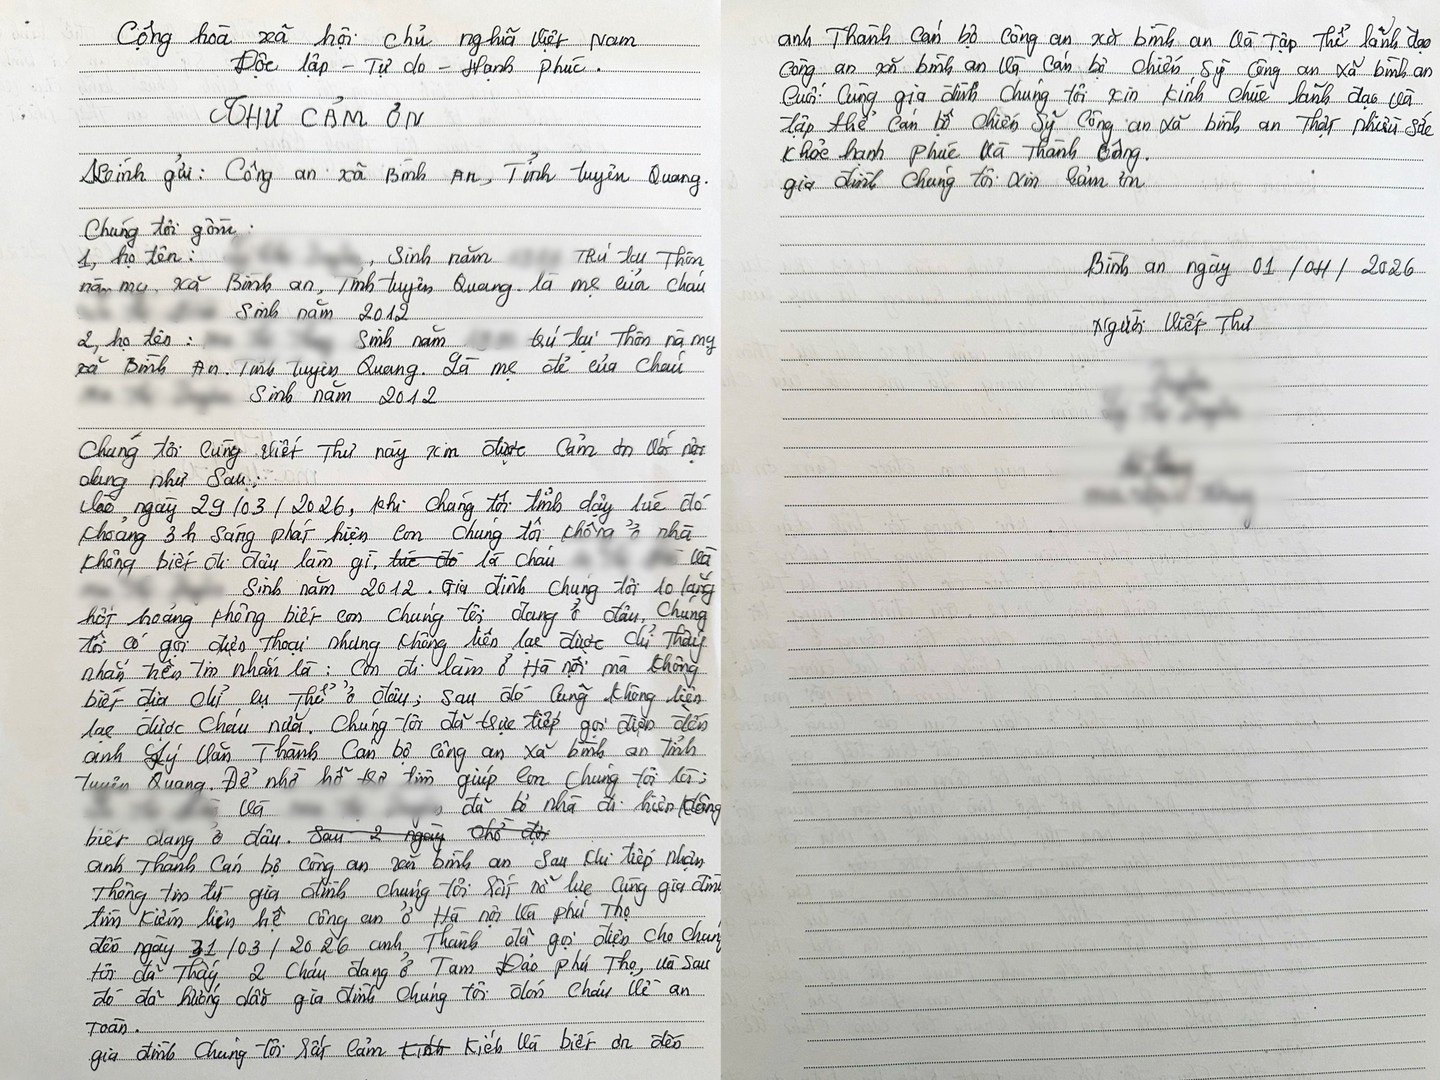 Cộng hoà xã hội chủ nghĩa Việt Nam
Độc lập - Tự do - Hạnh phúc.
THƯ CẢM ƠN
Kính gửi: Công an xã Bình An, Tỉnh tuyên Quang.
Chúng tôi gồm:
1, họ tên: , Sinh năm Trú tại Thôn
nà mạ, xã Bình an, Tỉnh tuyên Quang. là mẹ của cháu
Sinh năm 2012
2, họ tên: Sinh năm trú tại Thôn nà mỵ
xã Bình An. Tỉnh tuyên Quang. Là mẹ đẻ của Cháu
Sinh năm 2012
Chúng tôi cùng viết Thư này xin được Cảm ơn với nội
dung như Sau:
Vào ngày 29/03/2026, khi chúng tôi tỉnh dậy lúc đó
khoảng 3h sáng phát hiện con chúng tôi không ở nhà
không biết đi đâu làm gì, lúc đó là cháu và
Sinh năm 2012. Gia đình chúng tôi lo lắng
hốt hoảng không biết con chúng tôi đang ở đâu, Chúng
tôi có gọi điện Thoại nhưng không liên lạc được chỉ Thấy
nhắn tin nhắn là: Con đi làm ở Hà nội mà không
biết địa chỉ cụ Thể ở đâu; sau đó cũng không liên
lạc được Cháu nữa. Chúng tôi đã trực tiếp gọi điện đến
anh Lý Văn Thành Cán bộ công an xã bình an tỉnh
tuyên Quang. Để nhờ hỗ trợ tìm giúp con Chúng tôi là;
và đã bỏ nhà đi hiện không
biết đang ở đâu. Sau 2 ngày chờ đợi
anh Thành Cán bộ công an xã bình an sau khi tiếp nhận
Thông tin từ gia đình chúng tôi rất nỗ lực Cùng gia đình
tìm kiếm liên hệ công an ở Hà nội và phú Thọ
đến ngày 31/03/2026 anh Thành đã gọi điện cho Chúng
tôi đã Thấy 2 Cháu đang ở Tam Đảo phú Thọ, và sau
đó đã hướng dẫn gia đình Chúng tôi đón Cháu về an
Toàn.
gia đình Chúng tôi rất cảm kính kích và biết ơn đến
anh Thành Cán bộ Công an xã bình an và Tập Thể lãnh đạo
Công an xã bình an và Cán bộ chiến sỹ Công an xã bình an
Cuối Cùng gia đình Chúng tôi xin kính chúc lãnh đạo và
tập thể Cán bộ chiến sỹ Công an xã bình an Thật nhiều sức
khỏe hạnh phúc và Thành Công.
gia đình Chúng tôi xin Cảm ơn
Bình an ngày 01/04/2026
Người Viết Thư